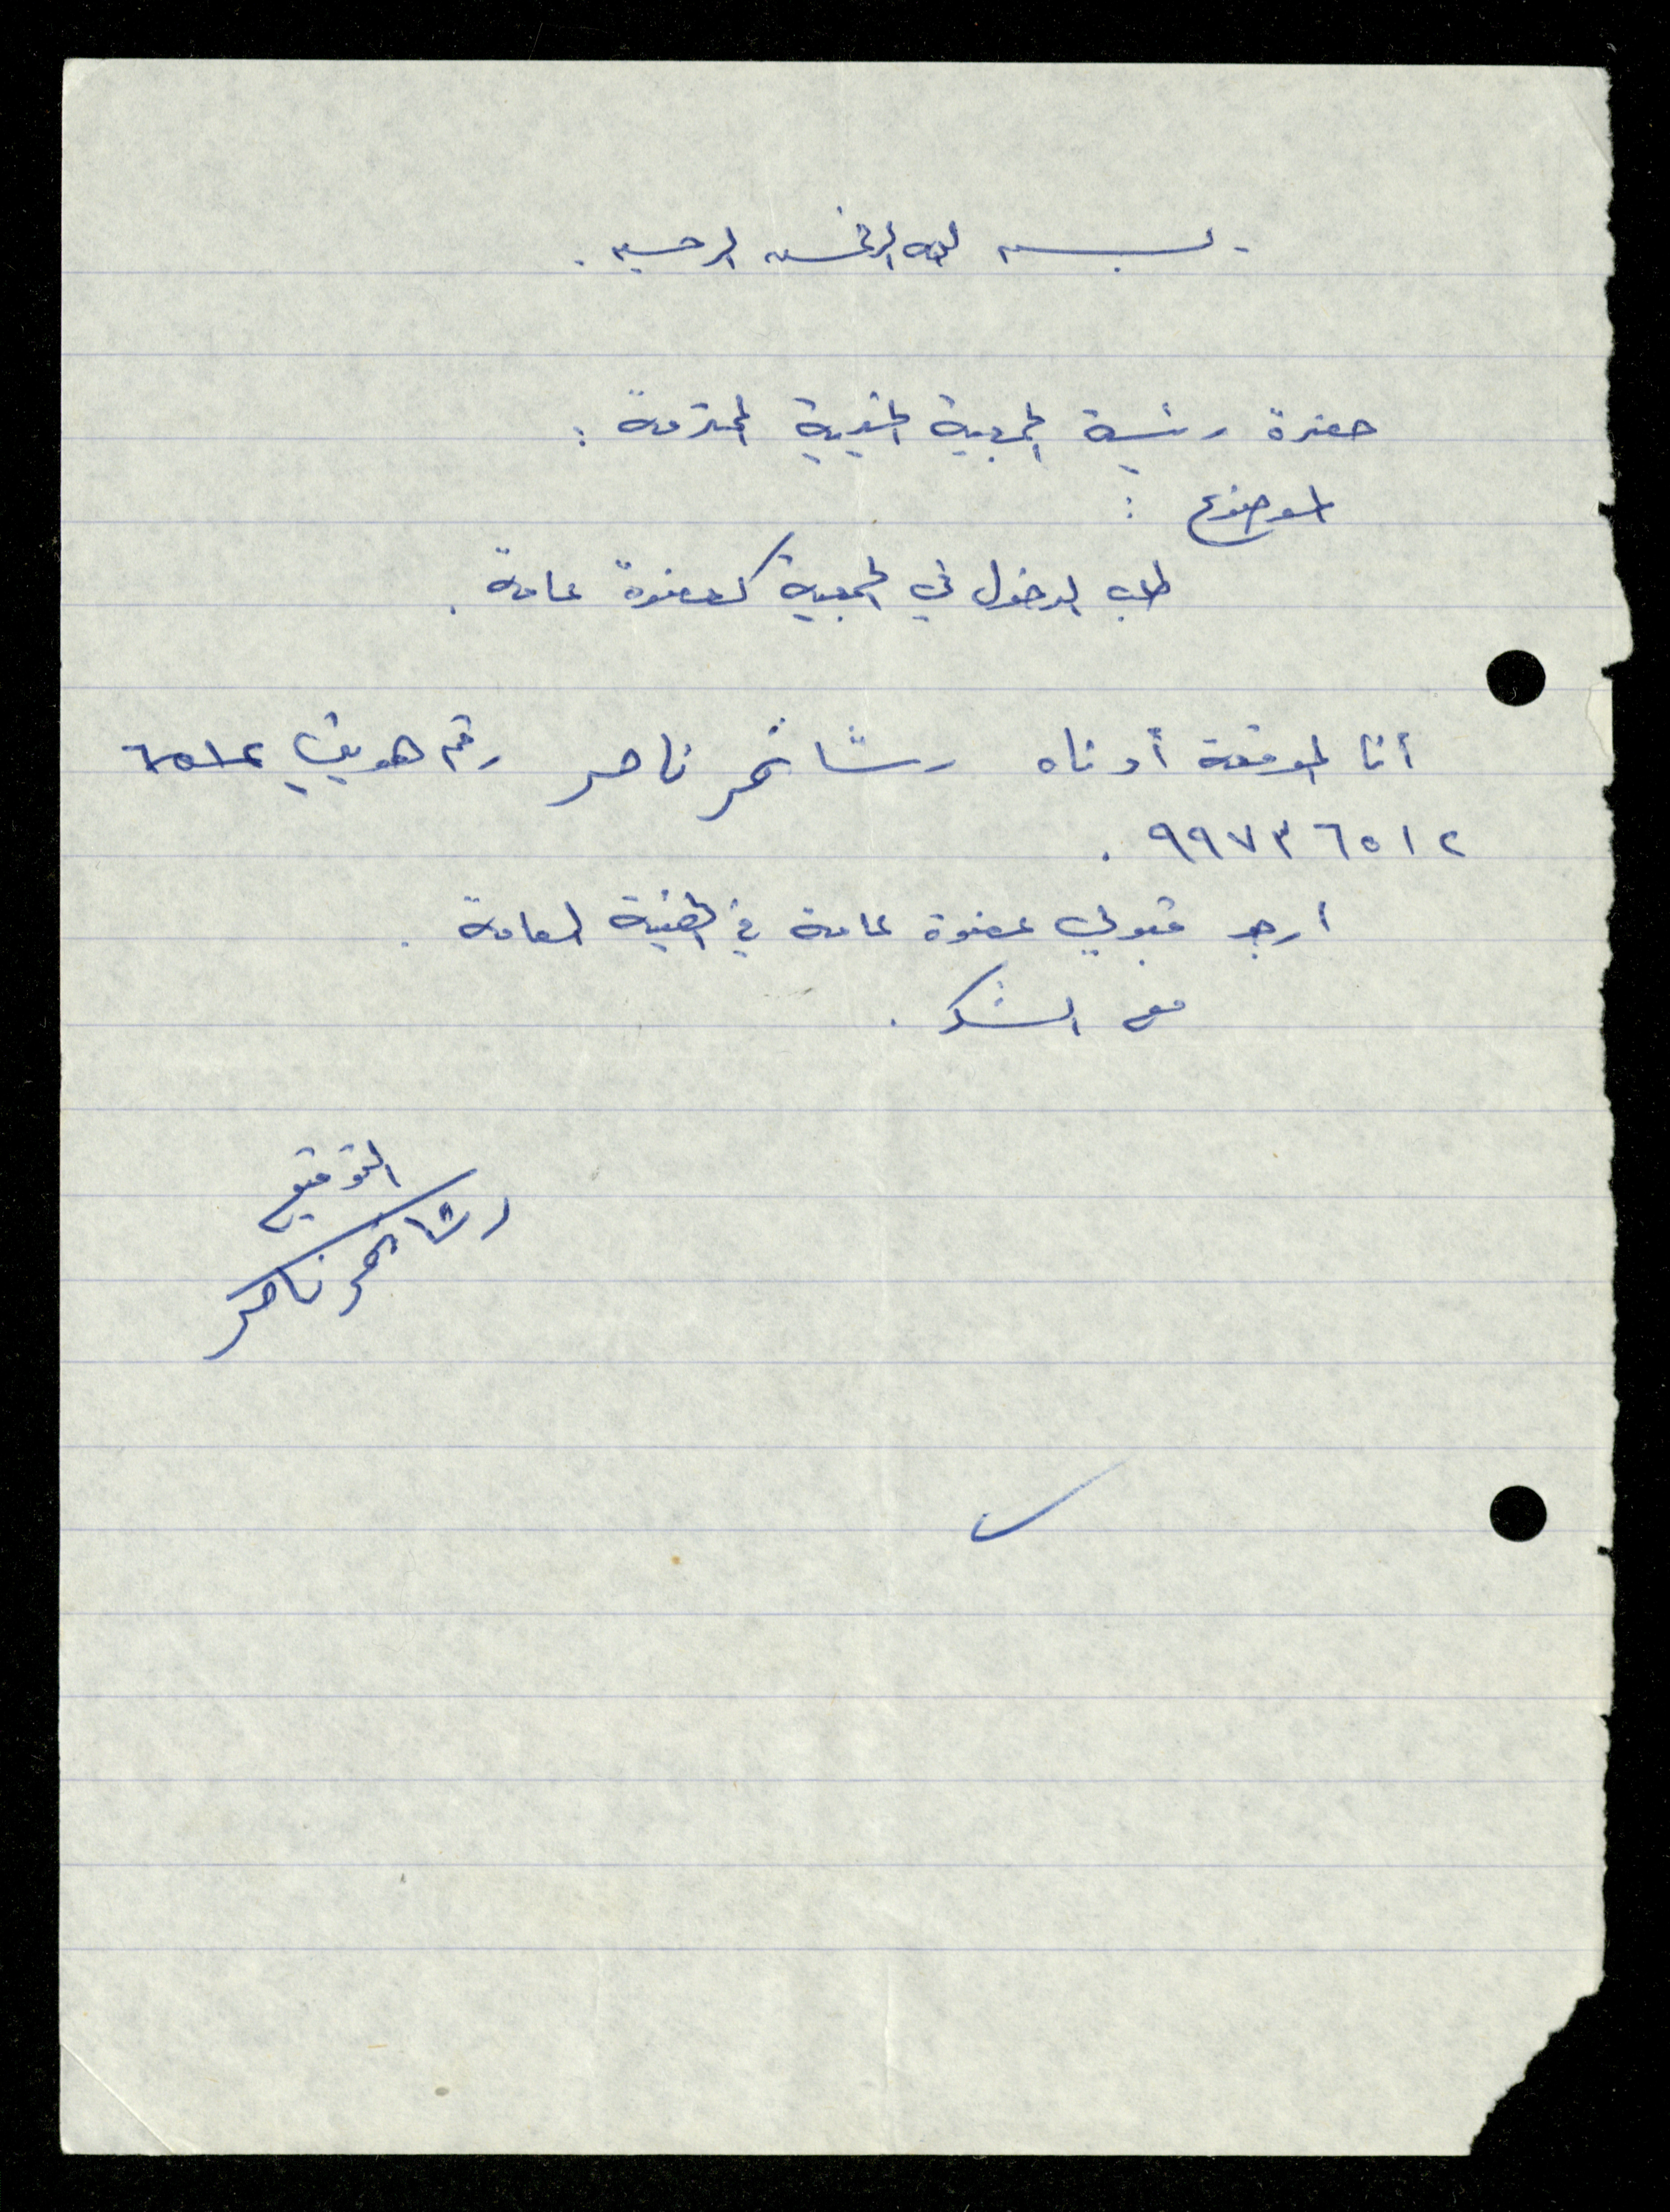 بسم الله الرحمن الرحيم .
حضرة رئيسة الجمعية الخيرية المحترمة :
الموضوع :
طلب الدخول في الجمعية كعضوة عامة .
أنا الموقعة أدناه رشا نمر ناصر رقم هويتي ٦٥١٢
٩٩٧٣٦٥١٢ .
أرجو قبولي عضوة عامة في الهيئة العامة .
مع الشكر .
التوقيع
رشا نمر ناصر